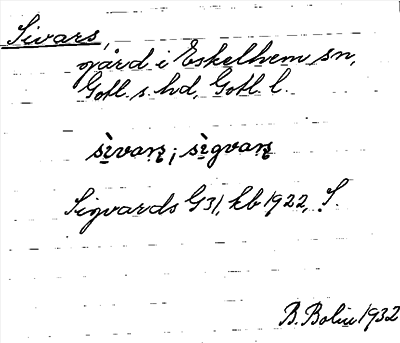 Sivars,
gård i Eskelhem sn,
Gotl. s. hd, Gotl. l.
sìvaꞃʐ; sìgvaꞃʐ
Sigvards G31, kb 1922, S.
B. Bolin 1932